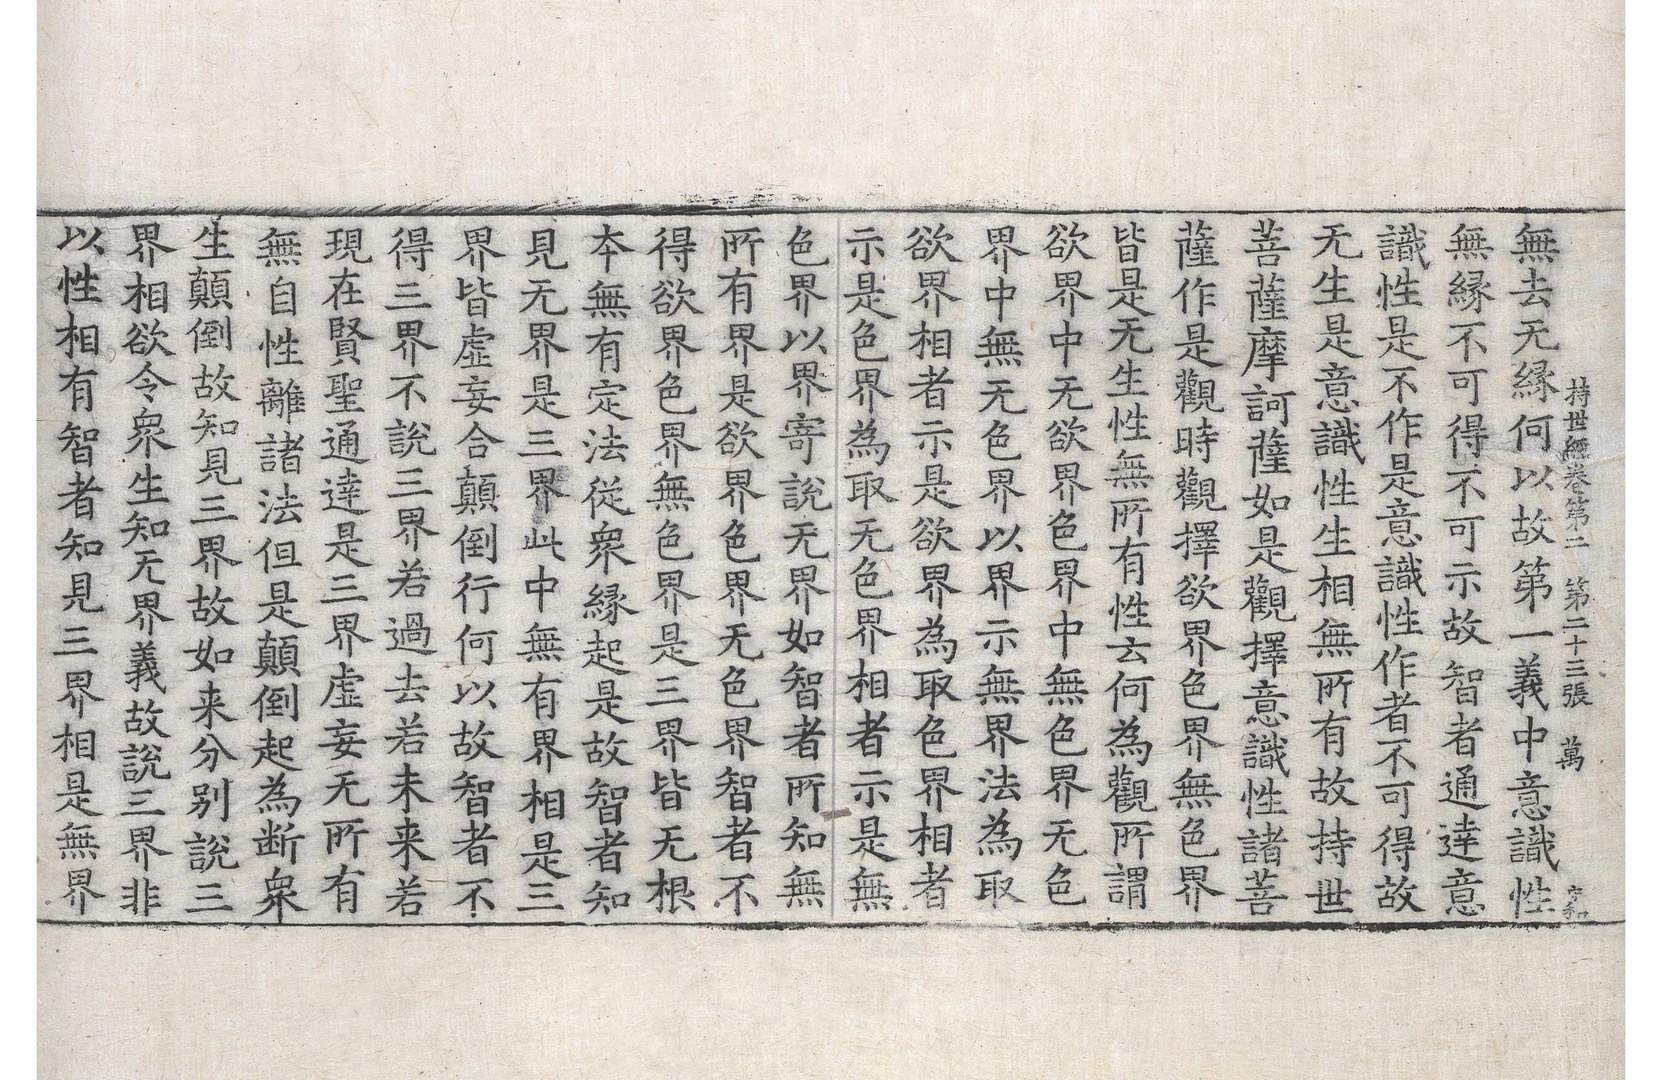 持世經卷第二　第二十三張　萬
無去无縁何以故第一義中意識性
無縁不可得不可示故智者通達意
識性是不作是意識性作者不可得故
无生是意識性生相無所有故持世
菩薩摩訶薩如是觀擇意識性諸菩
薩作是觀時觀擇欲界色界無色界
皆是无生性無所有性云何為觀所謂
欲界中无欲界色界中無色界无色
界中無无色界以界示無界法為取
欲界相者示是欲界為取色界相者
示是色界為取无色界相者示是無
色界以界寄說无界如智者所知無
所有界是欲界色界无色界智者不
得欲界色界無色界是三界皆无根
本無有定法從衆縁起是故智者知
見无界是三界此中無有界相是三
界皆虛妄合顛倒行何以故智者不
得三界不說三界若過去若未来若
現在賢聖通達是三界虛妄无所有
無自性離諸法但是顛倒起為断衆
生顛倒故知見三界故如来分别說三
界相欲令衆生知无界義故說三界非
以性相有智者知見三界相是無界